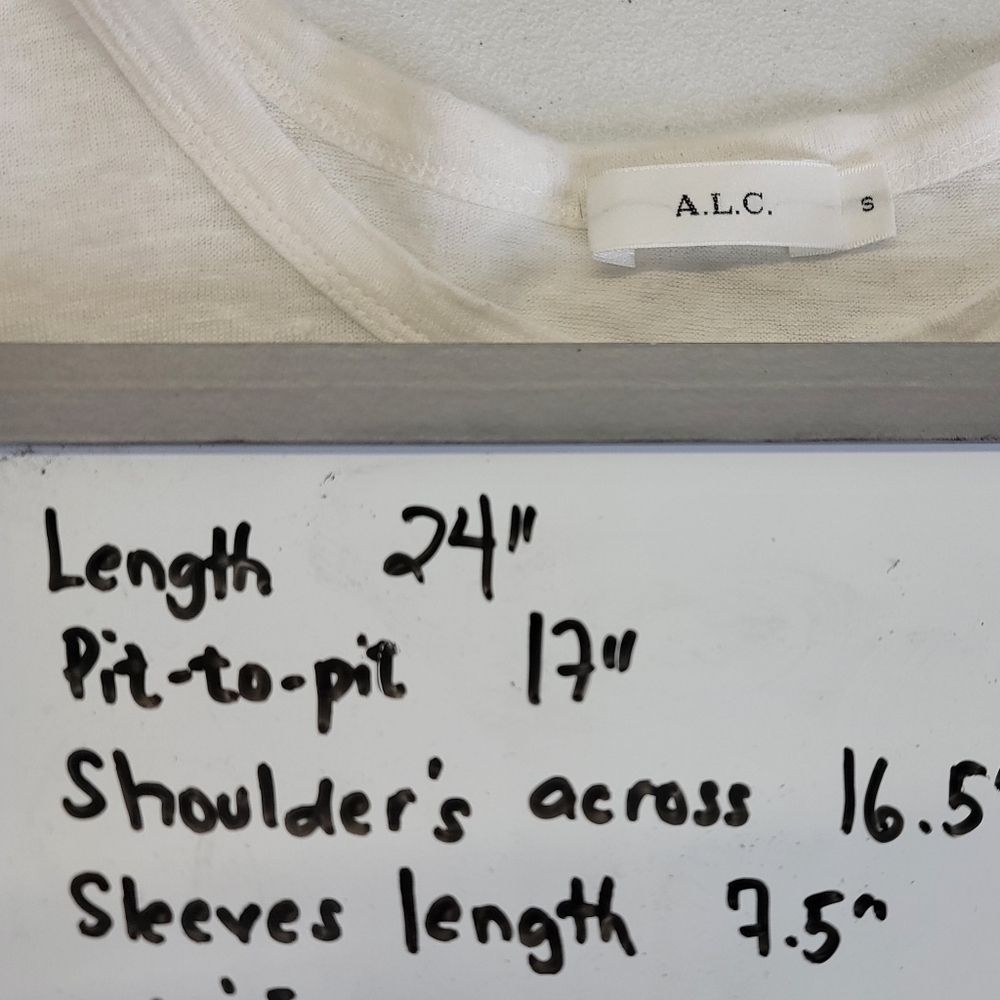 A.L.C. S
Length 24"
Pit-to-pit 17"
Shoulder's across 16.5"
Sleeves length 7.5"